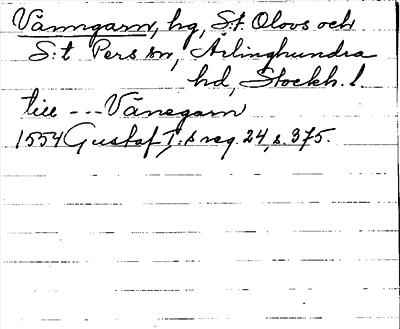 Vänngarn, hg, S:t Olovs och
S:t Pers sn, Ärlinghundra
hd, Stockh. l.
till --- Vänegarn
1554 Gustaf I:s reg. 24, s. 375.